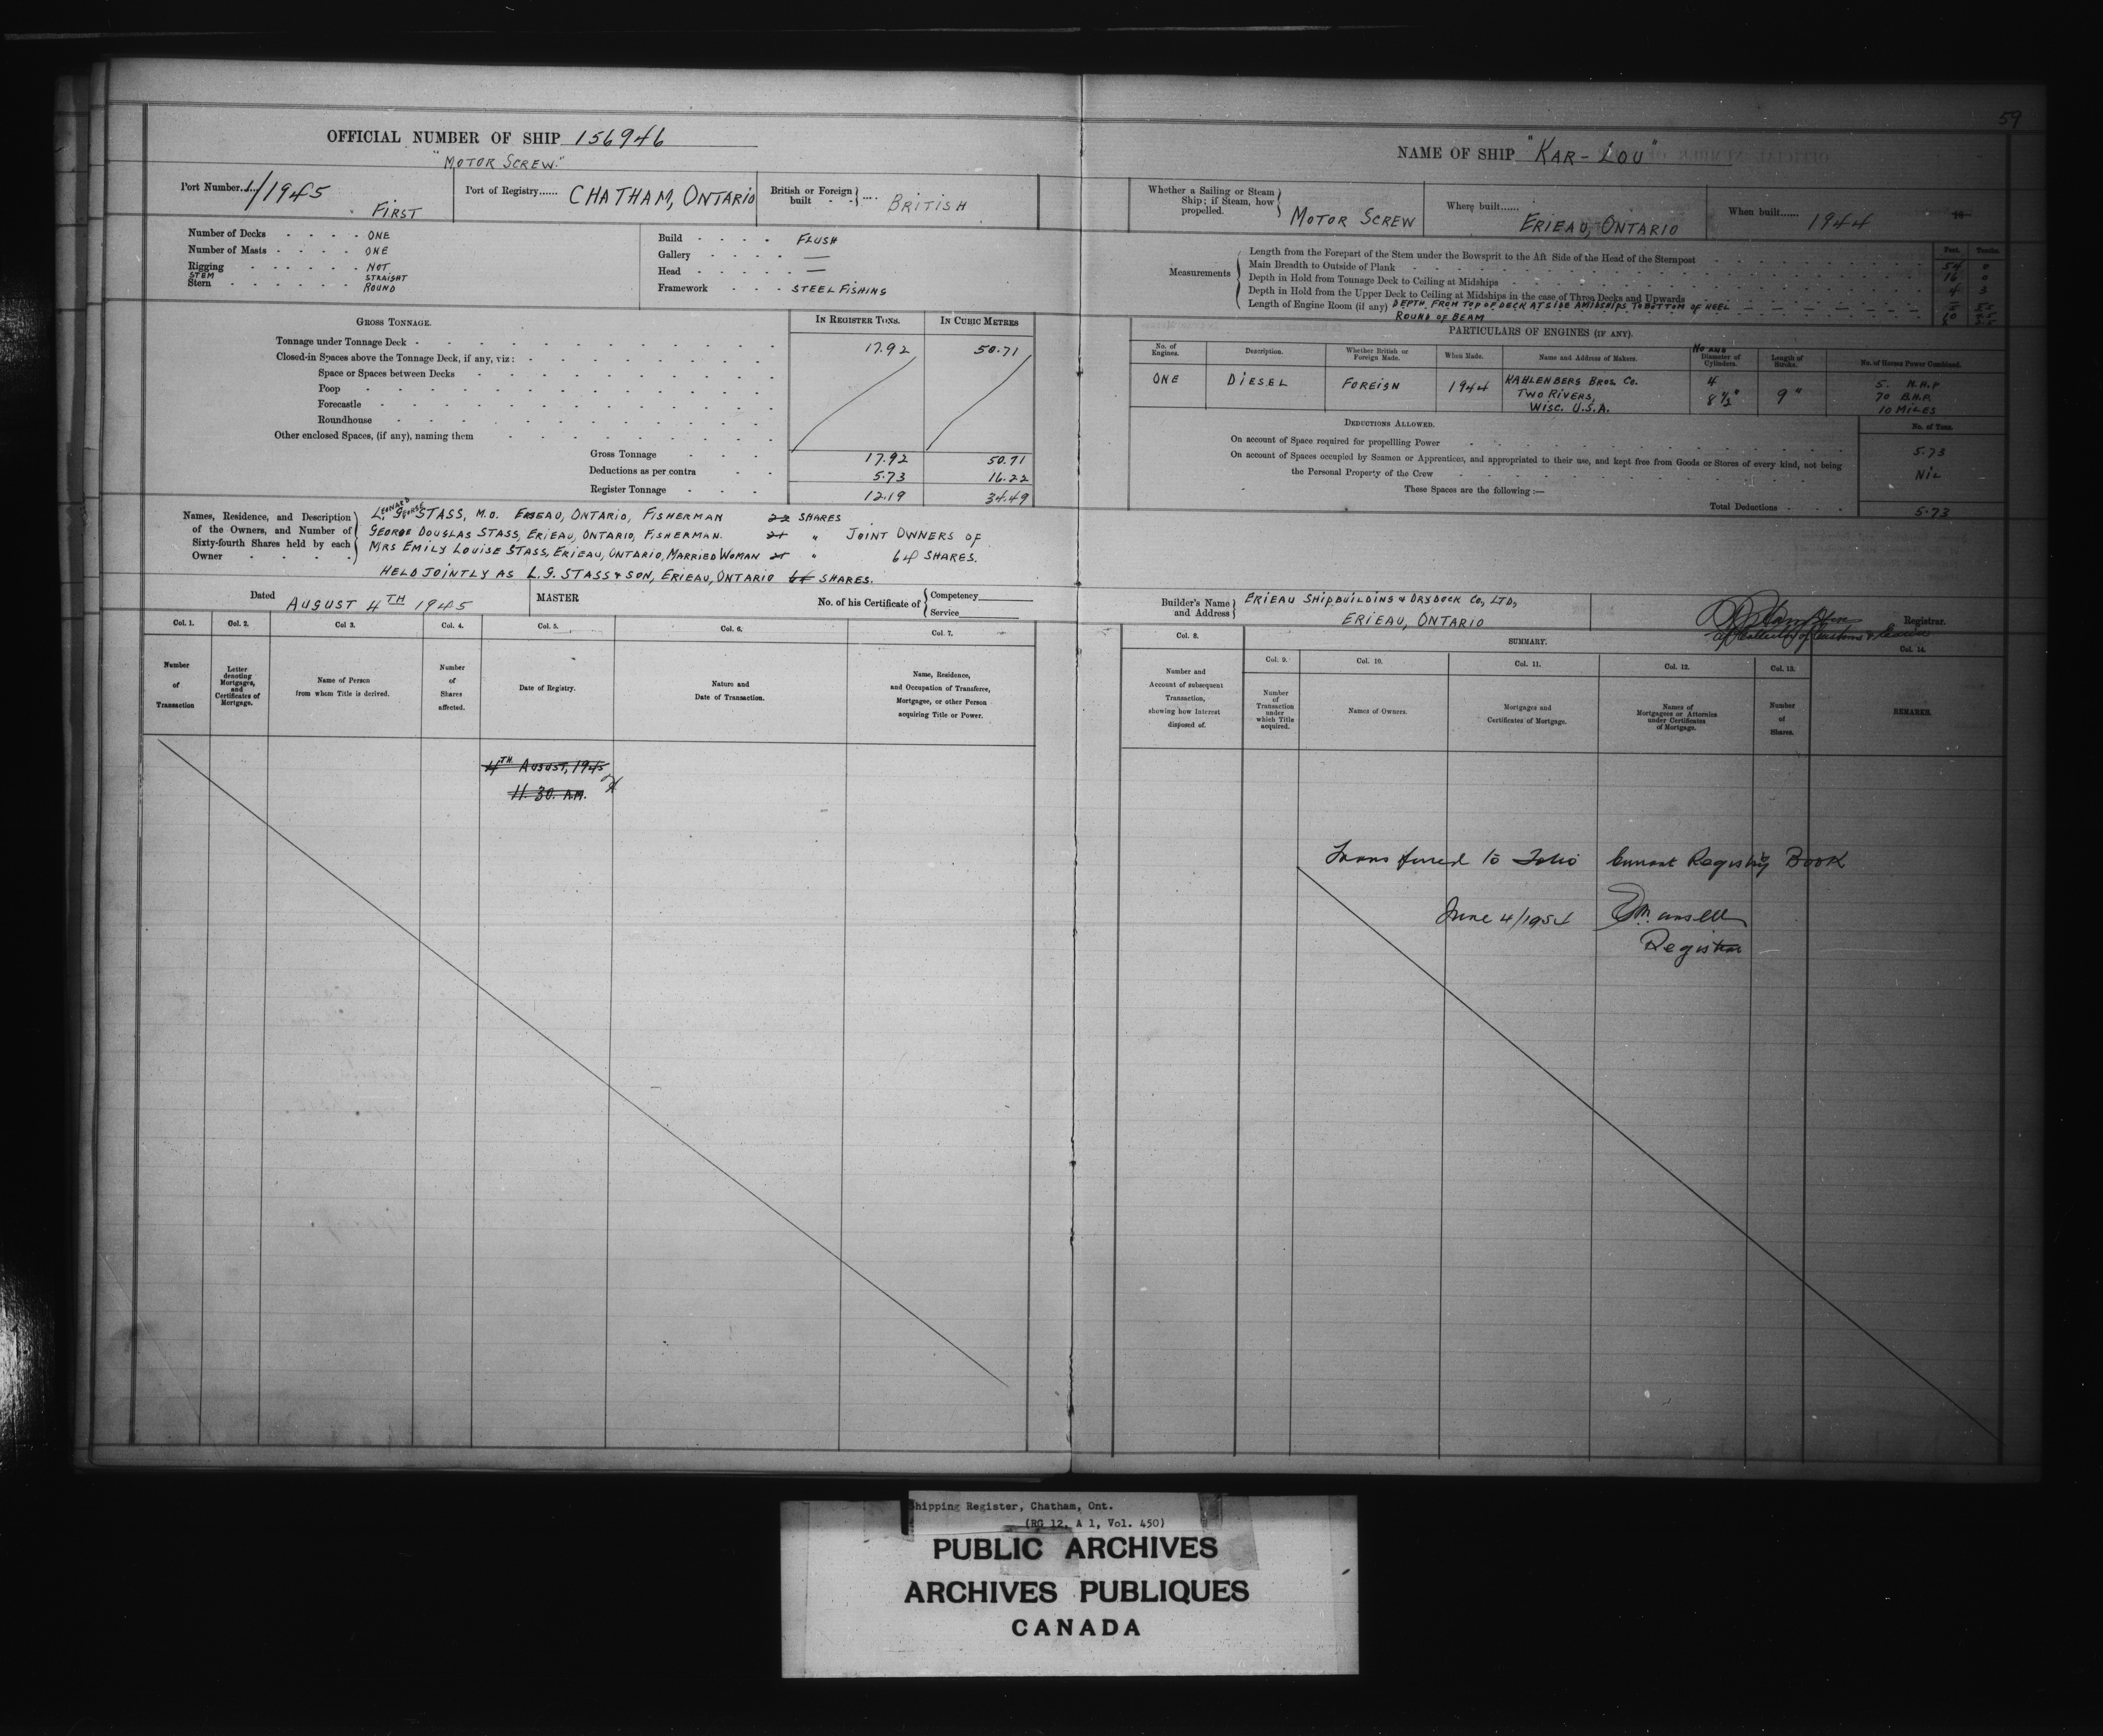 59
OFFICIAL NUMBER OF SHIP 156946
"MOTOR SCREW."
Port Number 1/1945 FIRST
Port of Registry...... CHATHAM, ONTARIO
British or Foreign built - - .... BRITISH
Number of Decks - - - - ONE
Number of Masts - - - - ONE
Rigging - - - - - NOT
STEM STRAIGHT
Stern - - - - - - ROUND
Build - - - - FLUSH
Gallery - - - - —
Head - - - - —
Framework - - - STEEL FISHING
GROSS TONNAGE.
IN REGISTER TONS.
IN CUBIC METRES
Tonnage under Tonnage Deck - 17.92 50.71
Closed-in Spaces above the Tonnage Deck, if any, viz:
Space or Spaces between Decks
Poop
Forecastle
Roundhouse
Other enclosed Spaces, (if any), naming them
Gross Tonnage - - - 17.92 50.71
Deductions as per contra - - 5.73 16.22
Register Tonnage - - - 12.19 34.49
Names, Residence, and Description of the Owners, and Number of Sixty-fourth Shares held by each Owner - - - -
LEONARD GEORGE STASS, M.O. ERIEAU, ONTARIO, FISHERMAN 22 SHARES
GEORGE DOUGLAS STASS, ERIEAU, ONTARIO, FISHERMAN. 21 " JOINT OWNERS OF
MRS EMILY LOUISE STASS, ERIEAU, ONTARIO, MARRIED WOMAN 21 " 64 SHARES.
HELD JOINTLY AS L.G. STASS & SON, ERIEAU, ONTARIO 64 SHARES.
Dated AUGUST 4TH 1945
MASTER
No. of his Certificate of
Competency
Service
Col. 1.
Col. 2.
Col 3.
Col. 4.
Col. 5.
Col. 6.
Col. 7.
Number of Transaction
Letter denoting Mortgages, and Certificates of Mortgage.
Name of Person from whom Title is derived.
Number of Shares affected.
Date of Registry.
Nature and Date of Transaction.
Name, Residence, and Occupation of Transferee, Mortgagee, or other Person acquiring Title or Power.
4TH AUGUST, 1945
11.30. A.M.
NAME OF SHIP "KAR-LOU"
Whether a Sailing or Steam Ship; if Steam, how propelled. MOTOR SCREW
Where built...... ERIEAU, ONTARIO
When built...... 1944
Measurements
Feet.
Tenths.
Length from the Forepart of the Stem under the Bowsprit to the Aft Side of the Head of the Sternpost 54 0
Main Breadth to Outside of Plank 16 0
Depth in Hold from Tonnage Deck to Ceiling at Midships 4 3
Depth in Hold from the Upper Deck to Ceiling at Midships in the case of Three Decks and Upwards
Length of Engine Room (if any) DEPTH FROM TOP OF DECK AT SIDE AMIDSHIPS TO BOTTOM OF KEEL
ROUND OF BEAM
PARTICULARS OF ENGINES (IF ANY).
No. of Engines.
Description.
Whether British or Foreign Made.
When Made.
Name and Address of Makers.
NO AND Diameter of Cylinders.
Length of Stroke.
No. of Horse Power Combined.
ONE
DIESEL
FOREIGN
1944
KAHLENBERG BROS. CO.
TWO RIVERS,
WISC. U.S.A.
4
8 1/2"
9"
5. N.H.P
70 B.H.P.
10 MILES
DEDUCTIONS ALLOWED.
No. of Tons.
On account of Space required for propellling Power 5.73
On account of Spaces occupied by Seamen or Apprentices, and appropriated to their use, and kept free from Goods or Stores of every kind, not being
the Personal Property of the Crew NIL
These Spaces are the following :—
Total Deductions - - - 5.73
Builder's Name and Address
ERIEAU SHIPBUILDING & DRYDOCK CO., LTD,
ERIEAU, ONTARIO
Registrar.
Col. 8.
SUMMARY.
Col. 14.
Col. 9.
Col. 10.
Col. 11.
Col. 12.
Col. 13.
Number and Account of subsequent Transaction, showing how Interest disposed of.
Number of Transaction under which Title acquired.
Names of Owners.
Mortgages and Certificates of Mortgage.
Names of Mortgagees or Attornies under Certificates of Mortgage.
Number of Shares.
REMARKS.
Transferred to Folio Current Registry Book
June 4/1954
Registrar
Shipping Register, Chatham, Ont.
(RG 12, A 1, Vol. 450)
PUBLIC ARCHIVES
ARCHIVES PUBLIQUES
CANADA